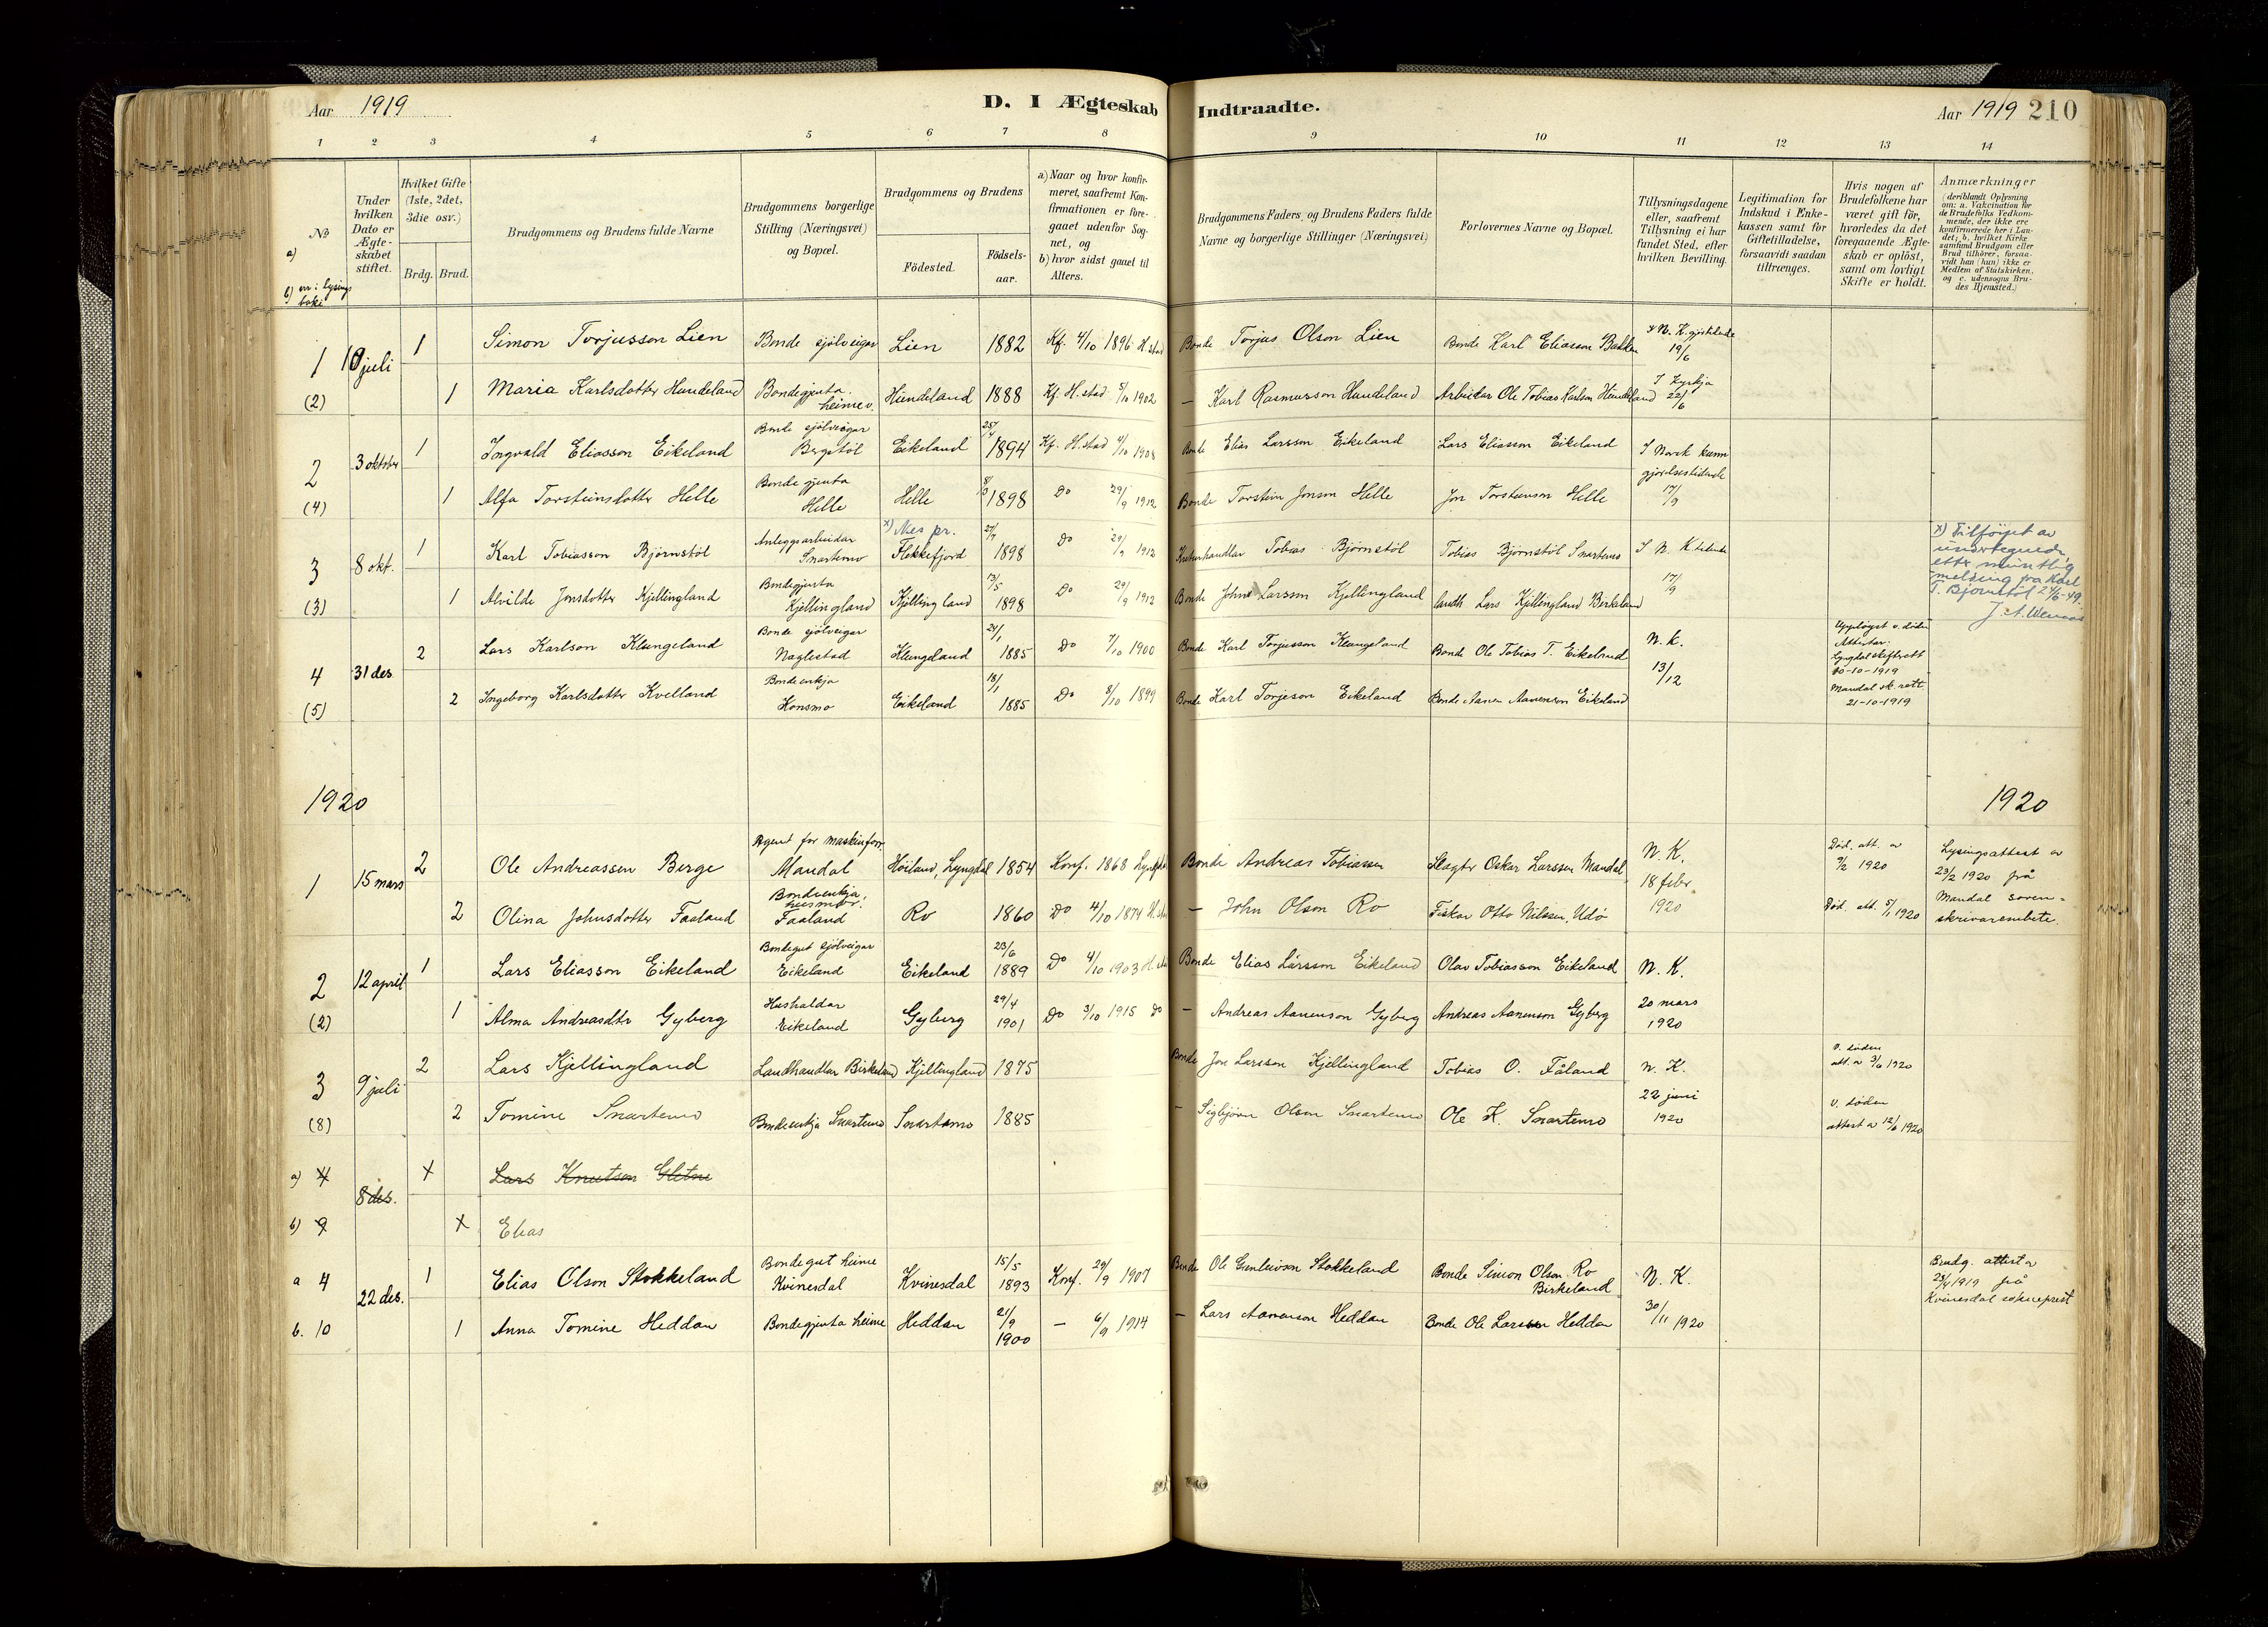 Aar 1919
D. I Ægteskab Indtraadte.
Aar 1919 210
1 2 3 4 5 6 7 8 9 10 11 12 13 14
№
a)
b) nr. i lysings boki
Under hvilken Dato er Ægteskabet stiftet.
Hvilket Gifte (1ste, 2det, 3die osv.)
Brdg. Brud.
Brudgommens og Brudens fulde Navne
Brudgommens borgerlige Stilling (Næringsvei) og Bopæl.
Brudgommens og Brudens
Fødested. Fødselsaar.
a) Naar og hvor konfirmeret, saafremt Konfirmationen er foregaaet udenfor Sognet, og
b) hvor sidst gaaet til Alters.
Brudgommens Faders og Brudens Faders fulde Navne og borgerlige Stillinger (Næringsvei)
Forlovernes Navne og Bopæl.
Tillysningsdagene eller, saafremt Tillysning ei har fundet Sted, efter hvilken Bevilling.
Legitimation for Indskud i Enkekassen samt for Giftetilladelse, forsaavidt saadan tiltrænges.
Hvis nogen af Brudefolkene har været gift før, hvorledes da det foregaaende Ægteskab er opløst, samt om lovligt Skifte er holdt.
Anmærkninger
(deriblandt Oplysning om: a. Vakcination for de Brudefolks Vedkommende, der ikke ere konfirmerede her i Landet; b. hvilket Kirkesamfund Brudgom eller Brud tilhører, forsaavidt han (hun) ikke er Medlem af Statskirken, og c. udensogns Brudes Hjemsted.)
1 10 juli 1 Simon Torjusson Lien Bonde sjölveigar Lien 1882 Kf. 4/10 1896 H.stad Bonde Torjus Olson Lien Bonde Karl Eliasson Bakken N. K. gjöstidende 19/6
(2) 1 Maria Karlsdotter Hundeland Bondegjenta heime v. Hundeland 1888 Kf. H.stad 5/10 1902 — Karl Rasmusson Hundeland Arbeidar Ole Tobias Karlson Hundeland I kyrkja 22/6
2 3 oktober 1 Ingvald Eliasson Eikeland Bonde sjölveigar Bergstöl Eikeland 25/4 1894 Kf. H.stad 4/10 1908 Bonde Elias Larsson Eikeland Lars Eliasson Eikeland I Norsk kunngjörelsestidende
(4) 1 Alfa Torsteinsdotter Helle Bonde gjenta Helle Helle 1898 Do 29/9 1912 Bonde Torstein Jonson Helle Jon Torsteinson Helle 17/9
3 8 okt. 1 Karl Tobiasson Bjørnstøl Anleggsarbeidar Snartemo x) Nes pr. Flekkefjord 1898 Do 29/9 1912 Tobias Bjørnstøl Tobias Bjørnstøl Snartemo I N. K. tidende
x) Tilføyet av undertegnede, etter muntlig melding fra Karl T. Bjørnstøl 24/6-49.
(3) 1 Alvilde Jonsdotter Kjellingland Bondegjenta Kjellingland Kjellingland 13/5 1898 Do 29/9 1912 Bonde John Larsson Kjellingland landh. Lars Kjellingland Birkeland 17/9
4 31 des 2 Lars Karlson Klungeland Bonde sjölveigar Naglestad Klungeland 24/1 1885 Do 7/10 1900 Bonde Karl Torjusson Klungeland Bonde Ole Tobias T. Eikelund N. K. 13/12 Uppløyst v. døden Attestar: Lyngdal skifterett 20-10-1919
(5) 2 Ingeborg Karlsdotter Kvelland Bondeenkja Konsmo Eikeland 18/1 1885 Do 8/10 1899 Bonde Karl Torjeson Eikeland Bonde Aanen Aanenson Eikeland Mandal sk. rett 21-10-1919
1920 1920
1 15 mars 2 Ole Andreassen Berge Agent for maskinforr. Mandal Høiland, Lyngdal 1854 Konf. 1868 Bonde Andreas Tobiassen Slagter Oskar Larssen Mandal N. K. 18 febr. 1920 Död. att. av 7/2 1920 Lysingsattest av 23/2 1920 frå Mandal sorenskrivarembete.
2 Olina Johnsdotter Faaland Bondeenkja, husmor. Faaland Ro 1860 Do 4/10 1874 — John Olson Ro Fiskar Otto Nilssen, Udö Död. att. 5/1 1920
2 12 april 1 Lars Eliasson Eikeland Bondegut sjölveigar Eikeland Eikeland 23/6 1889 Do 4/10 1903 Bonde Elias Larsson Eikeland Olav Tobiasson Eikeland N. K.
(2) 1 Alma Andreasdtr Gyberg Hushaldar Eikeland Gyberg 29/4 1901 Do 3/10 1915 Do — Andreas Aanenson Gyberg Andreas Aanenson Gyberg 20 mars 1920
3 9 juli 2 Lars Kjellingland Landhandlar Birkeland Kjellingland 1875 Bonde Jon Larsson Kjellingland Tobias O. Fåland N. K. v. døden att. av 3/6 1920
(8) 2 Tomine Snartemo Bondeenkja Snartemo Snartemo 1885 — Sigbjørn Olson Snartemo Ole K. Snartemo 22 juni 1920 v. døden attest av 12/6 1920
a) 4 8 des. x Lars Knutson
b) 9 x Elias
a 4 22 des. 1 Elias Olson Stokkeland Bondegut heime Kvinesdal Kvinesdal 15/5 1893 Konf. 29/9 1907 Bonde Ole Gunleivson Stokkeland Bonde Simon Olson Ro Birkeland N. K. Brudg. attest av 23/4 1919 frå Kvinesdal sokneprest
b. 10 1 Anna Tomine Heddan Bondegjenta heime Heddan 21/9 1900 — 6/9 1914 — Lars Aanenson Heddan Bonde Ole Larssen Heddan 30/11 1920